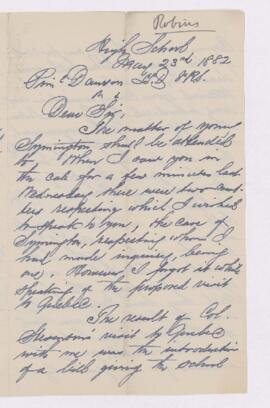 Robins
High School
May 23rd 1882
Prin. Dawson LL.D. F.R.S.
Dear Sir,
The matter of young
Symington shall be attended
to. When I saw you in
the cab for a few minutes last
Wednesday there were two mat-
ters respecting which I wished
to speak to you, the case of
Symington, respecting whom I
had made inquiries, being
one. However, I forgot it while
speaking of the proposed visit
to Quebec.
The result of Col.
Stevenson's visit to Quebec
with me was the introduction
of a bill giving the School